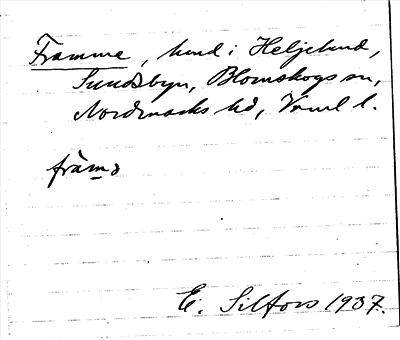 Framme, lund i Heljelund,
Sundsbyn, Blomskogs sn,
Nordmarks hd, Vrml l.
fràmə
E. Silfors 1937.